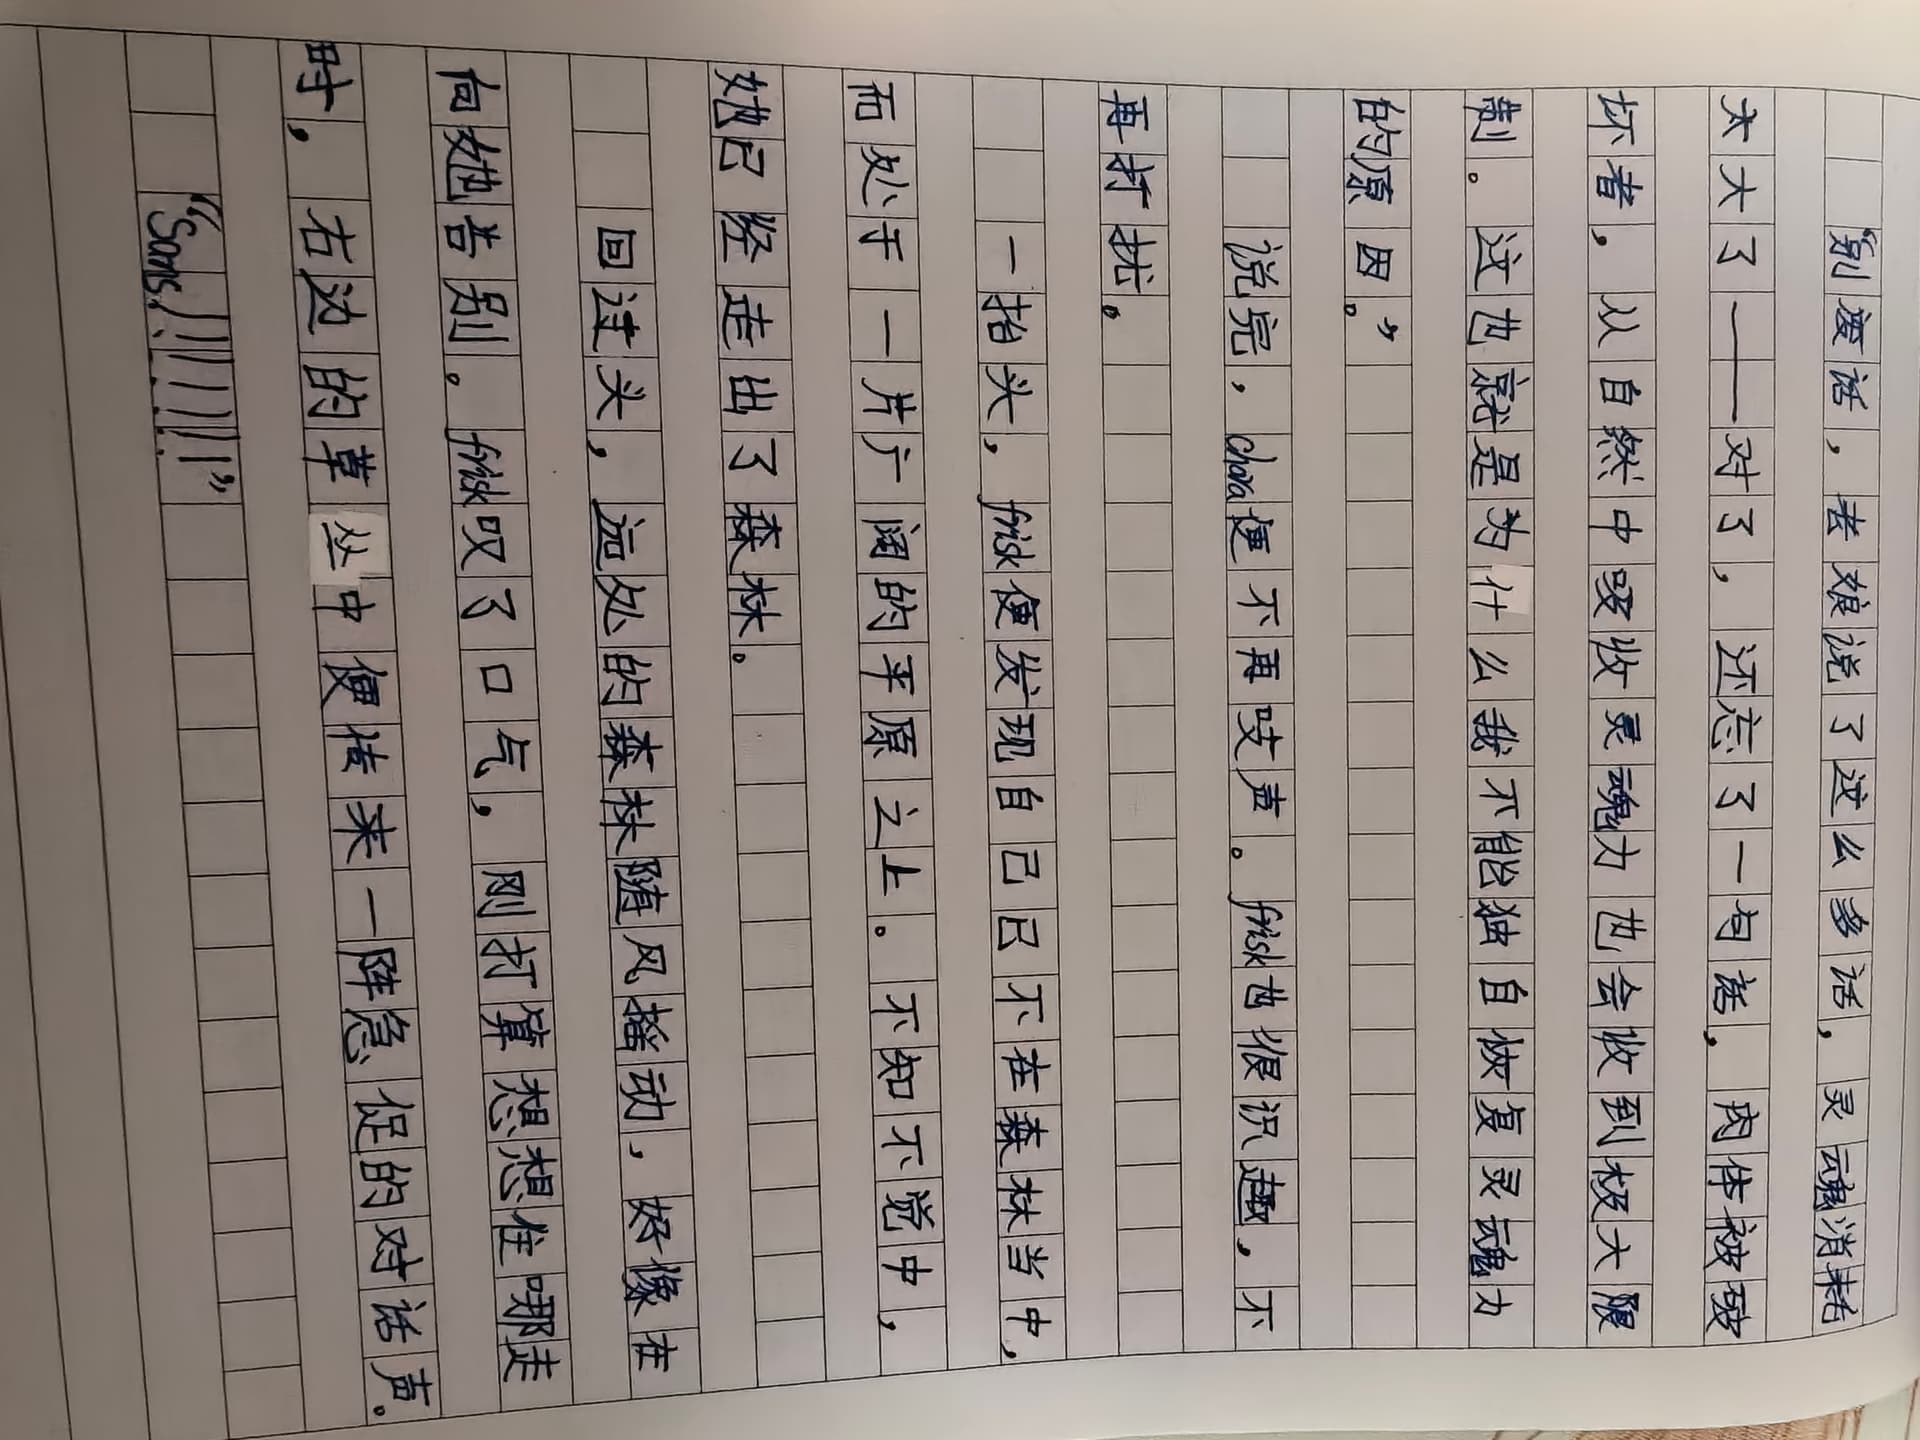 “别废话，老娘说了这么多话，灵魂消耗
太大了——对了，还忘了一句话，肉体被破
坏者，从自然中吸收灵魂力也会收到极大限
制。这也就是为什么我不能独自恢复灵魂力
的原因。”
说完，chara便不再吱声。frisk也很识趣，不
再打扰。
一抬头，frisk便发现自己已不在森林当中，
而处于一片广阔的平原之上。不知不觉中，
她已经走出了森林。
回过头，远处的森林随风摇动，好像在
向她告别。frisk叹了口气，刚打算想想往哪走
时，右边的草丛中便传来一阵急促的对话声。
“Sans!!!!!!”